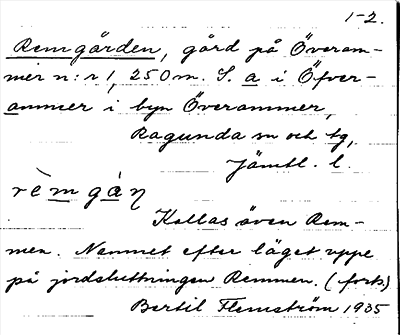 1-2.
Remgården, gård på Överam-
mer n:r 1, 250 m. S. a i Öfver-
ammer i byn Överammer,
Ragunda sn och tg,
Jämtl. l.
rèmgàṇ
Kallas även Rem-
men. Namnet efter läget uppe
på jordsluttningen Remmen. (forts)
Bertil Flemström 1935